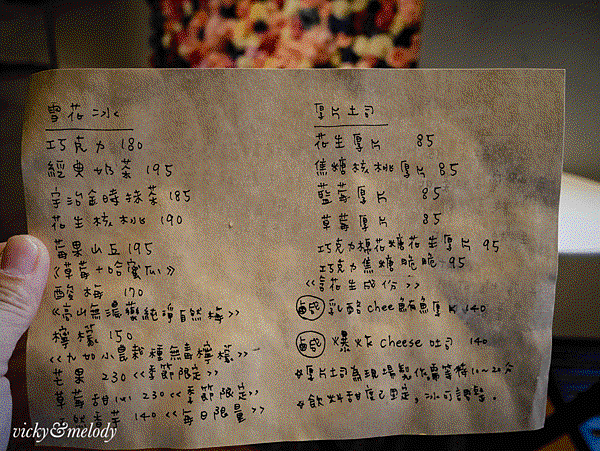 雪花冰
巧克力 180
經典奶茶 195
宇治金時抹茶 185
花生核桃 190
莓果山丘 195
《草莓+哈蜜瓜》
酸梅 170
《高山無濃藥純淨自然梅》
檸檬 150
《九如小農栽種無毒檸檬》
芒果 230 《季節限定》
草莓甜心 230 《季節限定》
140 《每日限量》
厚片土司
花生厚片 85
焦糖核桃厚片 85
藍莓厚片 85
草莓厚片 85
巧克力棉花糖花生厚片 95
巧克力焦糖脆脆 95
《含花生成份》
鹹 乳酪chee鮪魚厚片 140
鹹 爆炸cheese吐司 140
厚片土司為現場製作需等待10~20分
飲料甜度已固定，冰可調整。
vicky&melody